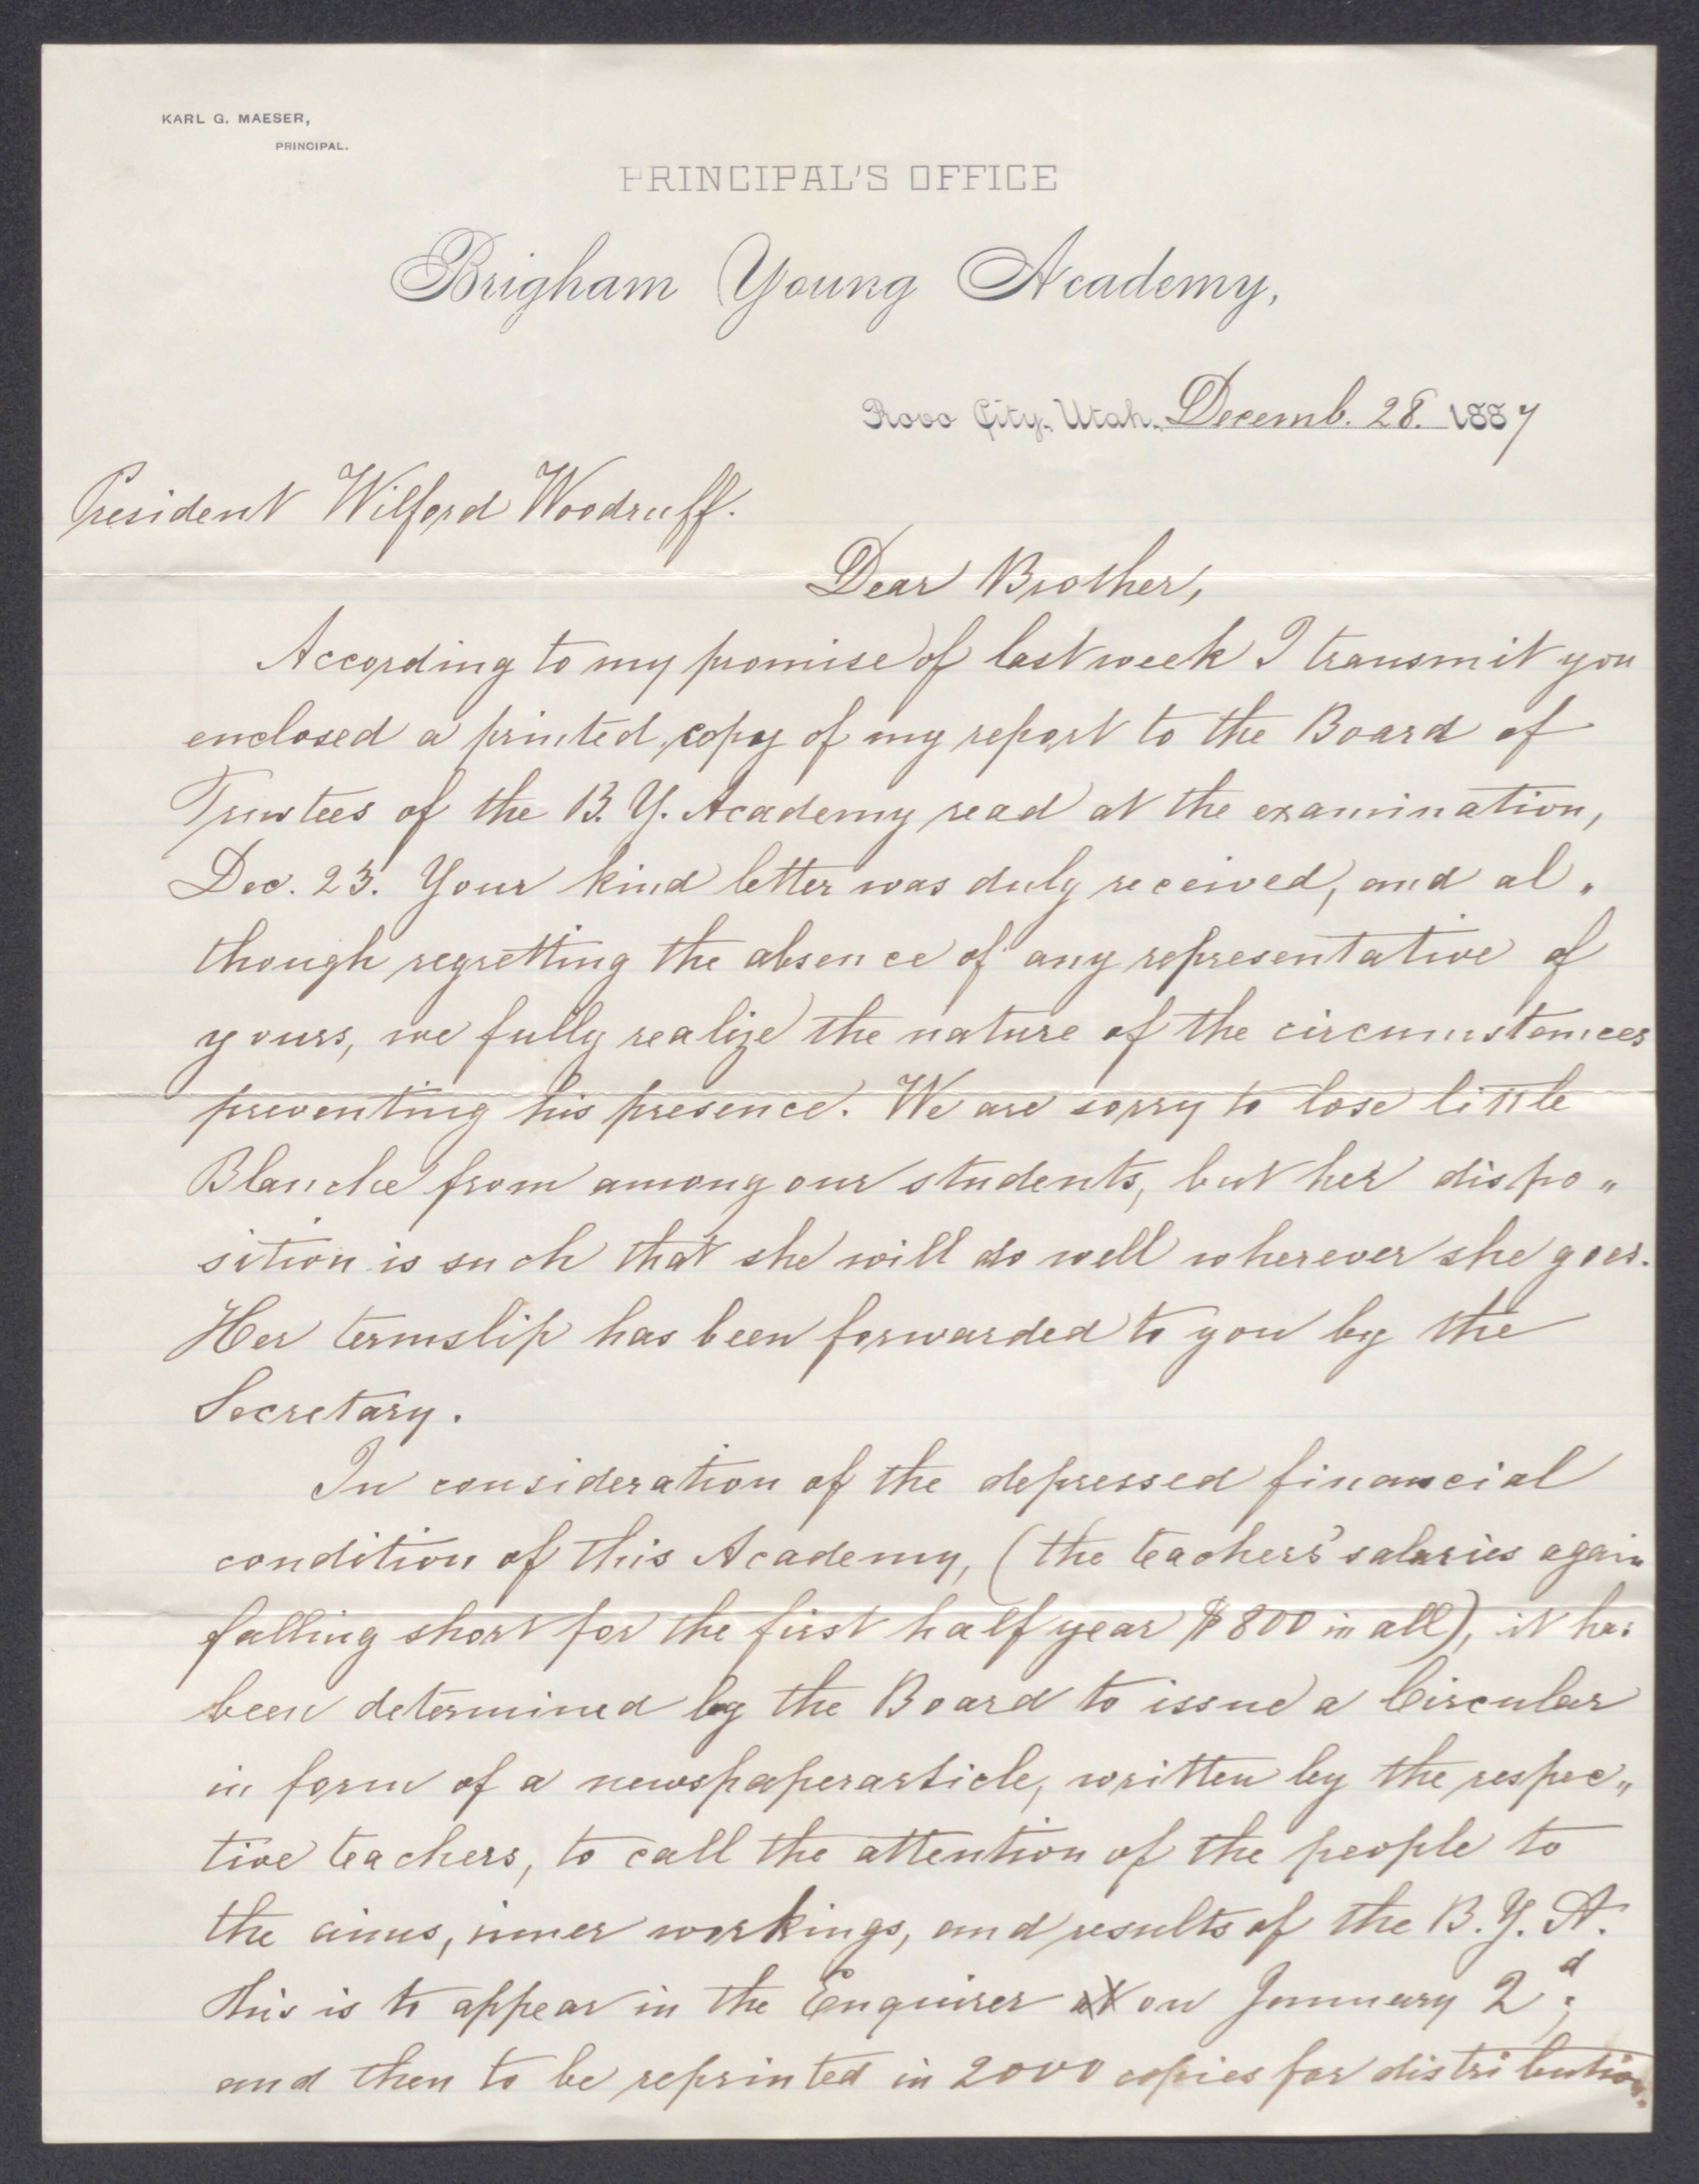 KARL G. MAESER,
PRINCIPAL.
PRINCIPAL'S OFFICE
Brigham Young Academy,
Provo City, Utah. Decemb. 28. 1887
President Wilford Woodruff.
Dear Brother,
According to my promise of last week I transmit you
enclosed a printed copy of my report to the Board of
Trustees of the B. Y. Academy read at the examination,
Dec. 23. Your kind letter was duly received, and al„
though regretting the absence of any representative of
yours, we fully realize the nature of the circumstances
preventing his presence. We are sorry to lose little
Blanche from among our students, but her dispo„
sition is such that she will do well wherever she goes.
Her termslip has been forwarded to you by the
Secretary.
In consideration of the depressed financial
condition of this Academy, (the teachers' salaries again
falling short for the first half year $800 in all), it has
been determined by the Board to issue a Circular
in form of a newspaperarticle, written by the respec„
tive teachers, to call the attention of the people to
the aims, inner workings, and results of the B. Y. A.
This is to appear in the Enquirer at on January 2d;
and then to be reprinted in 2000 copies for distribution.